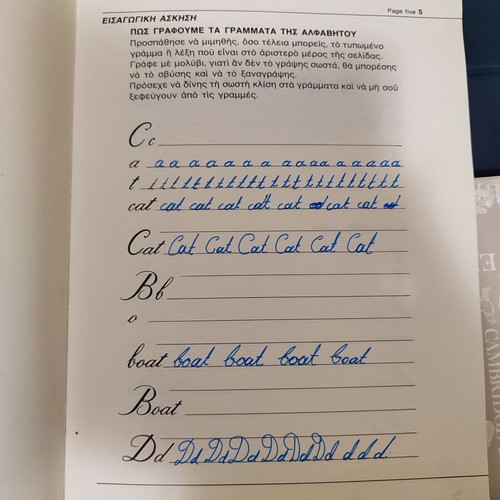 Page five 5
ΕΙΣΑΓΩΓΙΚΗ ΑΣΚΗΣΗ
ΠΩΣ ΓΡΑΦΟΥΜΕ ΤΑ ΓΡΑΜΜΑΤΑ ΤΗΣ ΑΛΦΑΒΗΤΟΥ
Προσπάθησε νὰ μιμηθῆς, ὅσο τέλεια μπορεῖς, τὸ τυπωμένο
γράμμα ἤ λέξη ποὺ εἶναι στὸ ἀριστερὸ μέρος τῆς σελίδας.
Γράφε μὲ μολύβι, γιατὶ ἂν δὲν τὸ γράψης σωστά, θὰ μπορέσης
νὰ τὸ σβύσης καὶ νὰ τὸ ξαναγράψης.
Πρόσεχε νὰ δίνης τὴ σωστὴ κλίση στὰ γράμματα καὶ νὰ μὴ σοῦ
ξεφεύγουν ἀπὸ τὶς γραμμές.
C c
a a a a a a a a a a a a a a a a a
t t t t t t t t t t t t t t t t t t t t
cat cat cat cat catt cat cat cat
Cat Cat Cat Cat Cat Cat Cat
B b
o
boat boat boat boat boat
Boat
D d Dd Dd Dd Dd Dd Dd Dd d d d